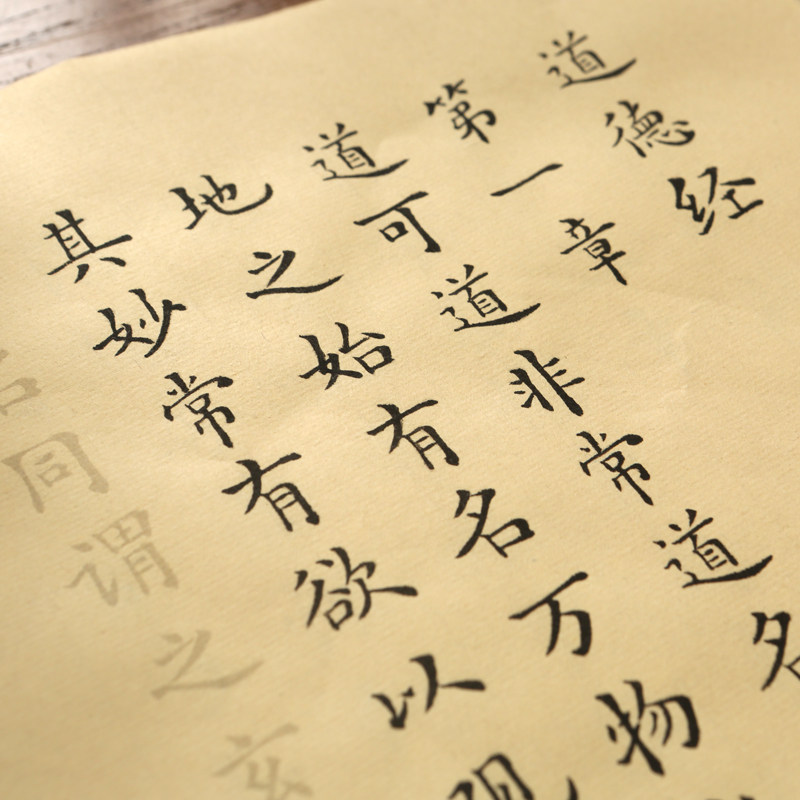 道德经
第一章
道可道非常道名
地之始有名万物
其妙常有欲以观
名同谓之玄